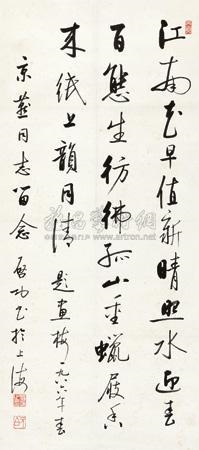 江南花早值新晴照水迎春
百態生彷彿孤山重蠟屐香
来紙上韻同清 题画梅一九八六年春
京同志留念 启功书於上海
www.artron.net